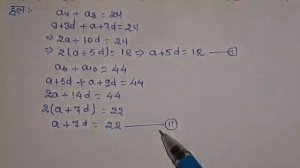 हल:- a₄ + a₈ = 24
a+3d + a+7d = 24
⇒ 2a + 10d = 24
⇒ 2(a+5d) = 12 ⇒ a+5d = 12 — ①
a₆ + a₁₀ = 44
a+5d + a+9d = 44
2a + 14d = 44
2(a+7d) = 22
a+7d = 22 — ⑪